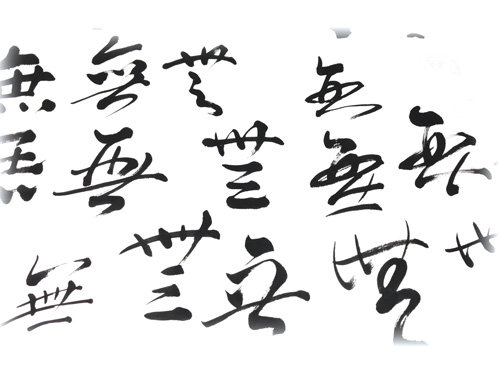 無 無 無 無
無 無 無 無 無
無 無 無 無